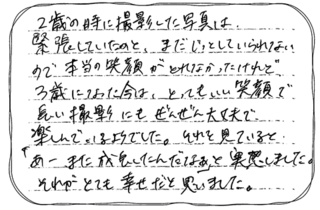 2歳の時に撮影した写真は、
緊張していたのと、まだじっとしていられない
ので本当の笑顔がとれなかったけれど
3歳になった今は、とってもいい笑顔で
長い撮影にもぜんぜん大丈夫で
楽しんでいるようでした。それを見ていると
「あーまた成長したんだなぁ」と実感しました。
それがとても幸せだと思いました。